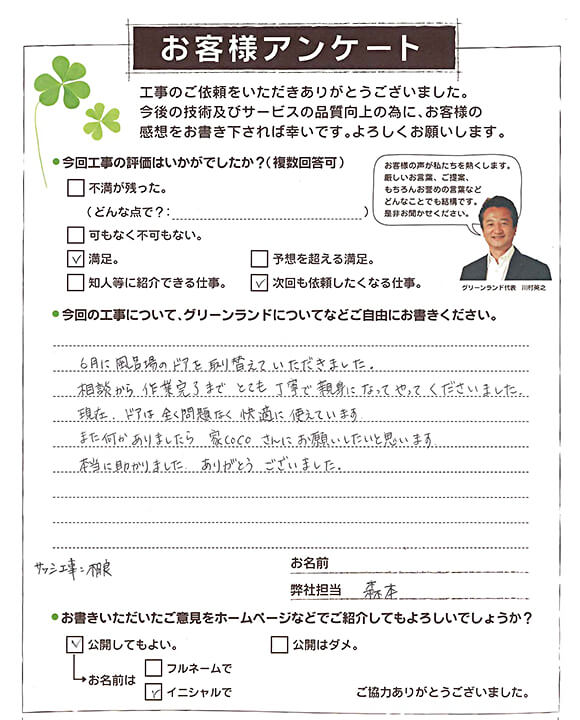 お客様アンケート
工事のご依頼をいただきありがとうございました。
今後の技術及びサービスの品質向上の為に、お客様の
感想をお書き下されば幸いです。よろしくお願いします。
●今回工事の評価はいかがでしたか?(複数回答可)
お客様の声が私たちを熱くします。
厳しいお言葉、ご提案、
もちろんお誉めの言葉など
どんなことでも結構です。
是非お聞かせください。
グリーンランド代表 川村英之
□不満が残った。
(どんな点で?:)
□可もなく不可もない。
☑満足。 □予想を超える満足。
□知人等に紹介できる仕事。 ☑次回も依頼したくなる仕事。
●今回の工事について、グリーンランドについてなどご自由にお書きください。
6月に風呂場のドアを取り替えていただきました。
相談から作業完了まで とても丁寧で親身になってやってくださいました。
現在、ドアは全く問題なく快適に使えています
また何かありましたら 家COCO さんにお願いしたいと思います
本当に助かりました ありがとうございました。
サッシ工事:相良
お名前
弊社担当 森本
●お書きいただいたご意見をホームページなどでご紹介してもよろしいでしょうか?
☑公開してもよい。 □公開はダメ。
お名前は □フルネームで
☑イニシャルで
ご協力ありがとうございました。